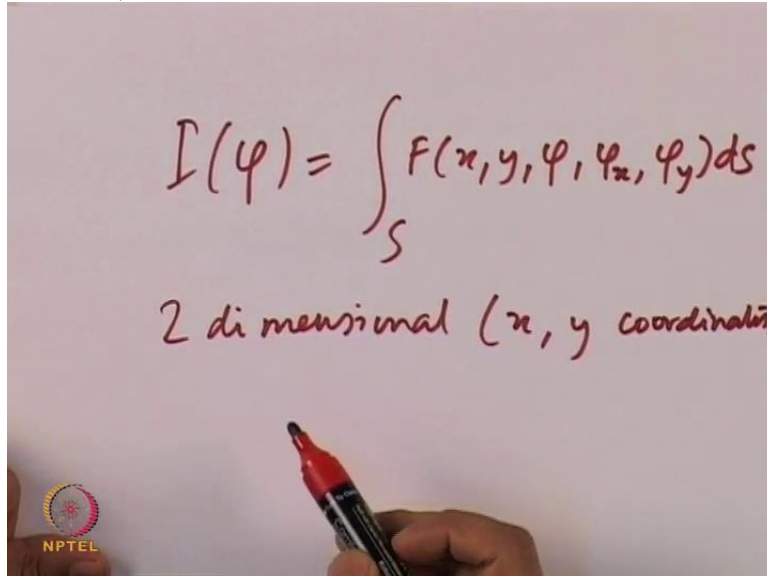 I(φ) = ∫_S F(x, y, φ, φ_x, φ_y) ds
2 dimensional (x, y coordinates
NPTEL